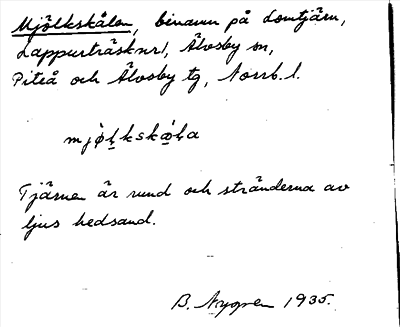 Mjölkskålen, binamn på Lomtjärn,
Lappurträsk nr 1, Älvsby sn,
Piteå och Älvsby tg, Norrb. l.
mjǿl̥kskǿl̥a
Tjärnen är rund och stränderna av
ljus hedsand.
B. Nygren 1935.